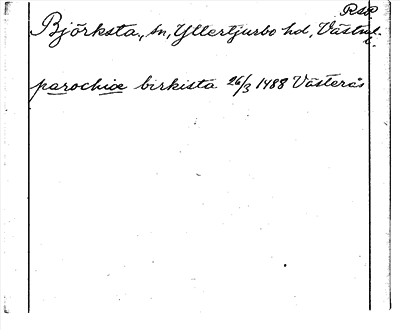 RAP.
Björksta, sn, Yttertjurbo hd, Västml.
l.
parochiæ birkista 26/3 1488 Västerås